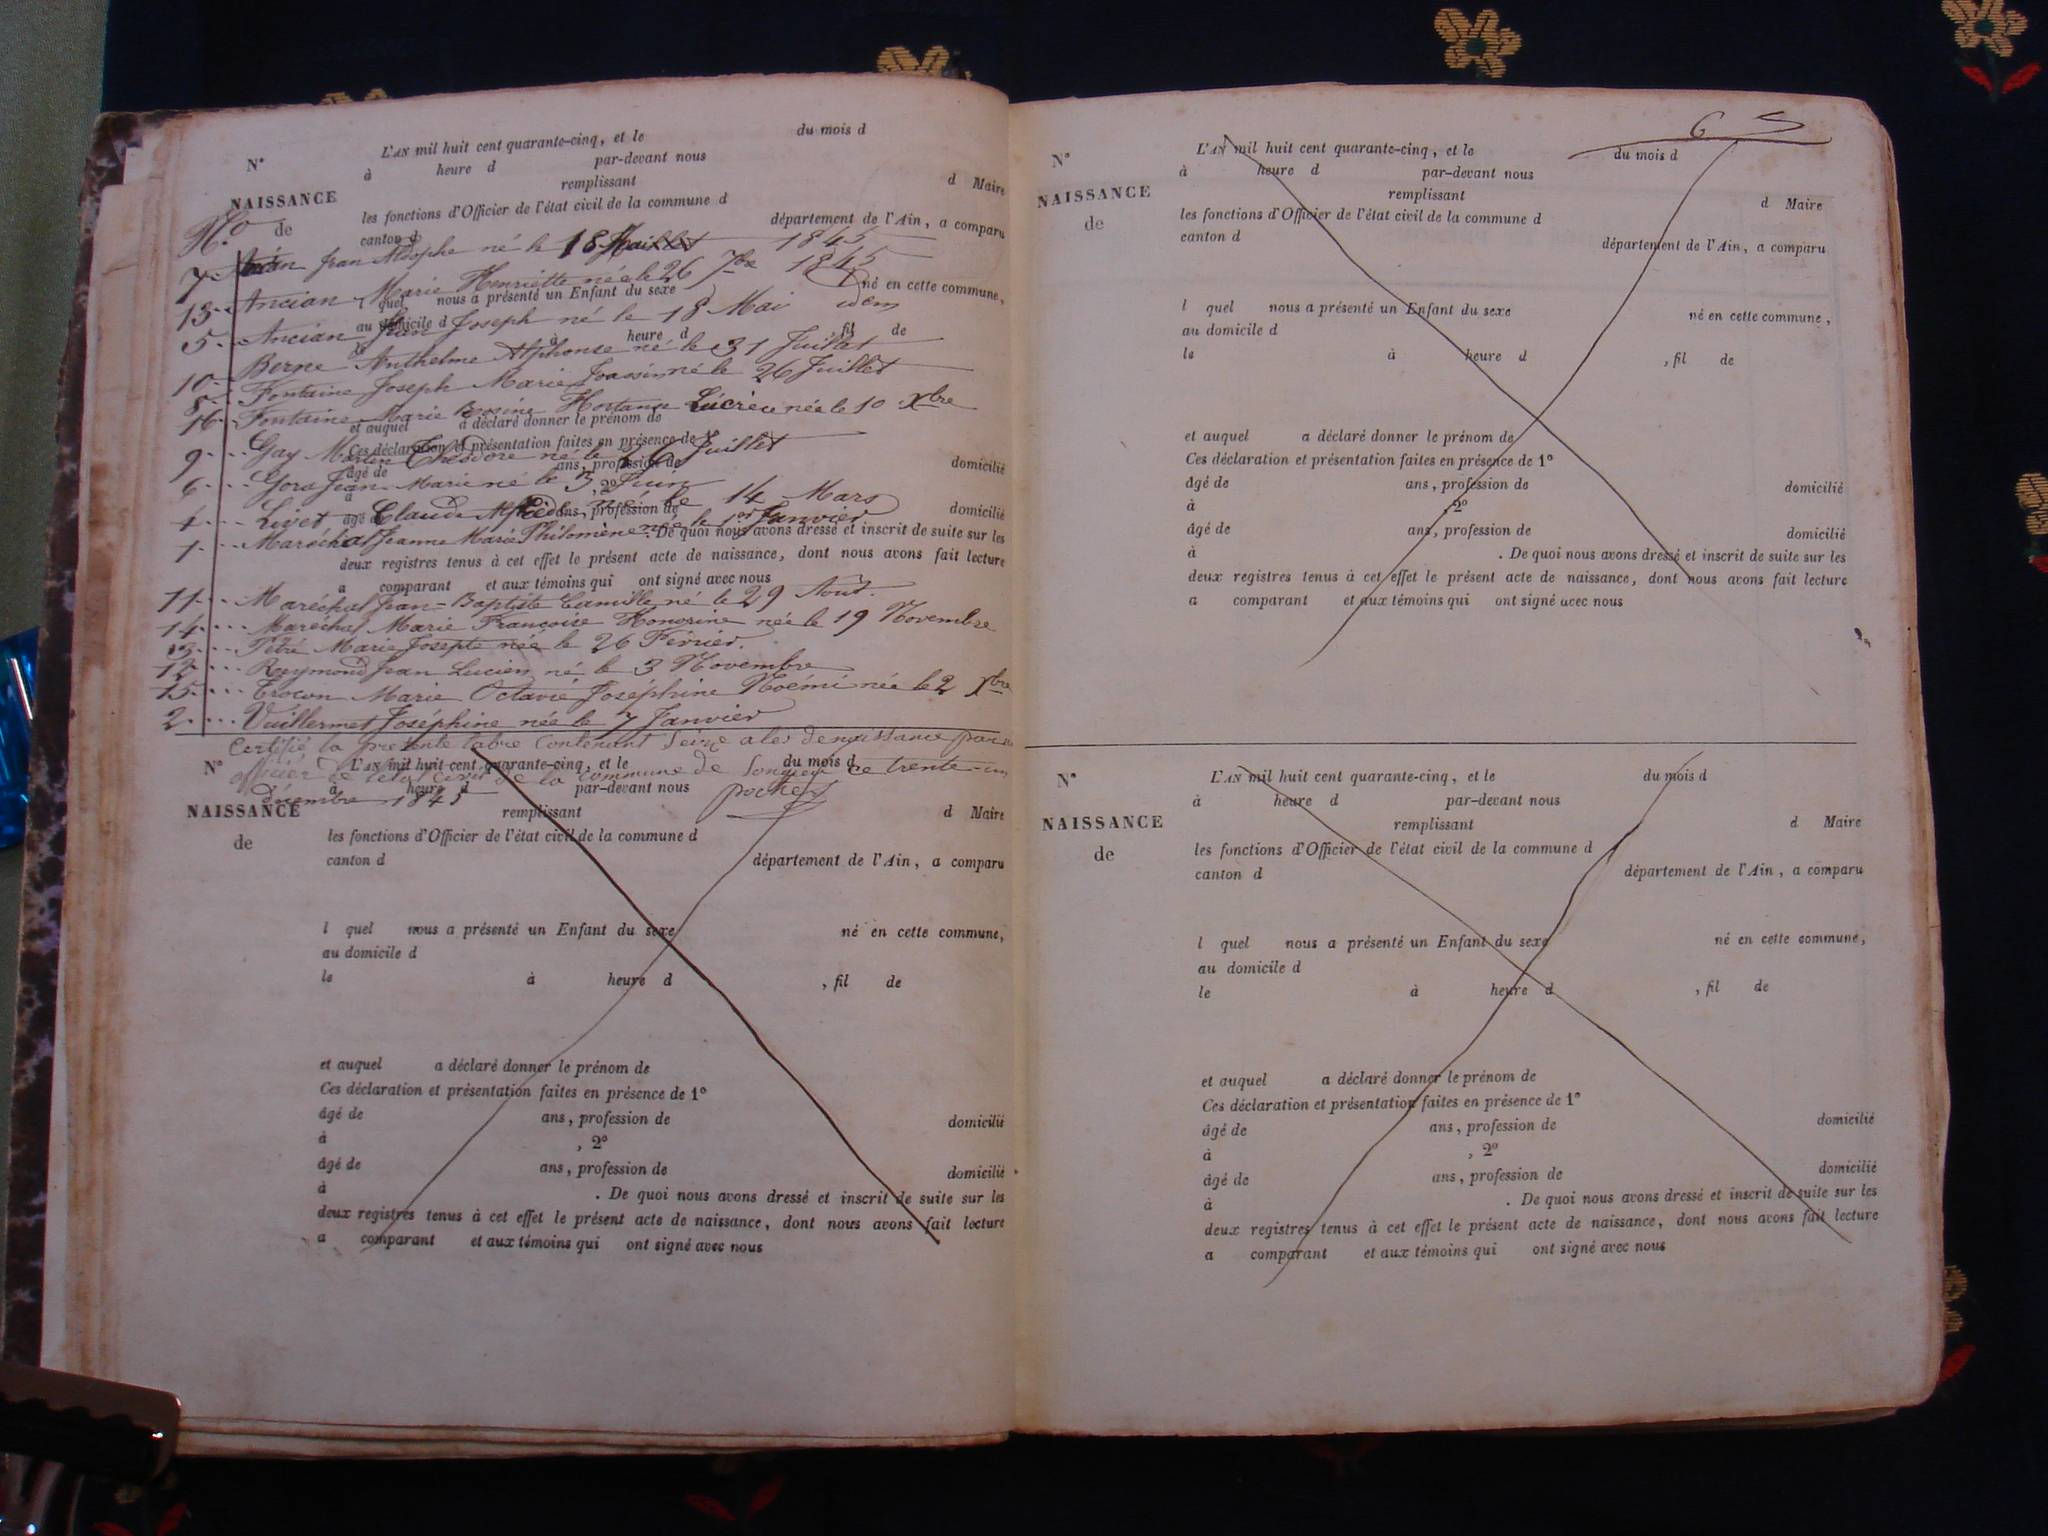 L'AN mil huit cent quarante-cinq, et le du mois d
N° à heure d par-devant nous
remplissant d Maire
NAISSANCE les fonctions d'Officier de l'état civil de la commune d
N.o de canton d département de l'Ain, a comparu
7 Ancian Jean Adolphe né le 18 1845
13 Ancian Marie Henriette née le 26 7bre 1845
quel nous a présenté un Enfant du sexe né en cette commune,
5 Ancian Jean Joseph né le 18 Mai idem
au domicile d
le à heure d fil de
10 Berne Anthelme Alphonse né le 31 Juillet
8 Fontaine Joseph Marie né le 26 Juillet
16 Fontaine Marie Rosine Hortance Lucrèce née le 10 Xbre
et auquel a déclaré donner le prénom de
Ces déclaration et présentation faites en présence de 1°
9 Gay Martin Théodore né le 26 Juillet
âgé de ans, profession de domicilié
6 Gors Jean Marie né le 3 Juin
à , 2°
4 Livet Claude né le 14 Mars
âgé de ans, profession de domicilié
1 Maréchal Jeanne Marie Philomène née le 1er Janvier
. De quoi nous avons dressé et inscrit de suite sur les
deux registres tenus à cet effet le présent acte de naissance, dont nous avons fait lecture
a comparant et aux témoins qui ont signé avec nous
11 Maréchal Jean-Baptiste Camille né le 29 Août.
14 Maréchal Marie Françoise Honorine née le 19 Novembre
3 Marie Josepte née le 26 Février.
12 Reymond Jean Lucien né le 3 Novembre
15 Trocon Marie Octavie Joséphine Noémi née le 2 Xbre
2 Vuillermet Joséphine née le 7 Janvier
Certifié la présente table contenant seize actes de naissance par
N° L'AN mil huit cent quarante-cinq, et le du mois d
officier de l'état civil de la commune de Songieu ce trente-un
à heure d par-devant nous
décembre 1845
NAISSANCE remplissant d Maire
de les fonctions d'Officier de l'état civil de la commune d
canton d département de l'Ain, a comparu
l quel nous a présenté un Enfant du sexe né en cette commune,
au domicile d
le à heure d , fil de
et auquel a déclaré donner le prénom de
Ces déclaration et présentation faites en présence de 1°
âgé de ans, profession de domicilié
à , 2°
âgé de ans, profession de domicilié
à . De quoi nous avons dressé et inscrit de suite sur les
deux registres tenus à cet effet le présent acte de naissance, dont nous avons fait lecture
a comparant et aux témoins qui ont signé avec nous
6
N° L'AN mil huit cent quarante-cinq, et le du mois d
à heure d par-devant nous
NAISSANCE remplissant d Maire
de les fonctions d'Officier de l'état civil de la commune d
canton d département de l'Ain, a comparu
l quel nous a présenté un Enfant du sexe né en cette commune,
au domicile d
le à heure d , fil de
et auquel a déclaré donner le prénom de
Ces déclaration et présentation faites en présence de 1°
âgé de ans, profession de domicilié
à , 2°
âgé de ans, profession de domicilié
à . De quoi nous avons dressé et inscrit de suite sur les
deux registres tenus à cet effet le présent acte de naissance, dont nous avons fait lecture
a comparant et aux témoins qui ont signé avec nous
N° L'AN mil huit cent quarante-cinq, et le du mois d
à heure d par-devant nous
NAISSANCE remplissant d Maire
de les fonctions d'Officier de l'état civil de la commune d
canton d département de l'Ain, a comparu
l quel nous a présenté un Enfant du sexe né en cette commune,
au domicile d
le à heure d , fil de
et auquel a déclaré donner le prénom de
Ces déclaration et présentation faites en présence de 1°
âgé de ans, profession de domicilié
à , 2°
âgé de ans, profession de domicilié
à . De quoi nous avons dressé et inscrit de suite sur les
deux registres tenus à cet effet le présent acte de naissance, dont nous avons fait lecture
a comparant et aux témoins qui ont signé avec nous